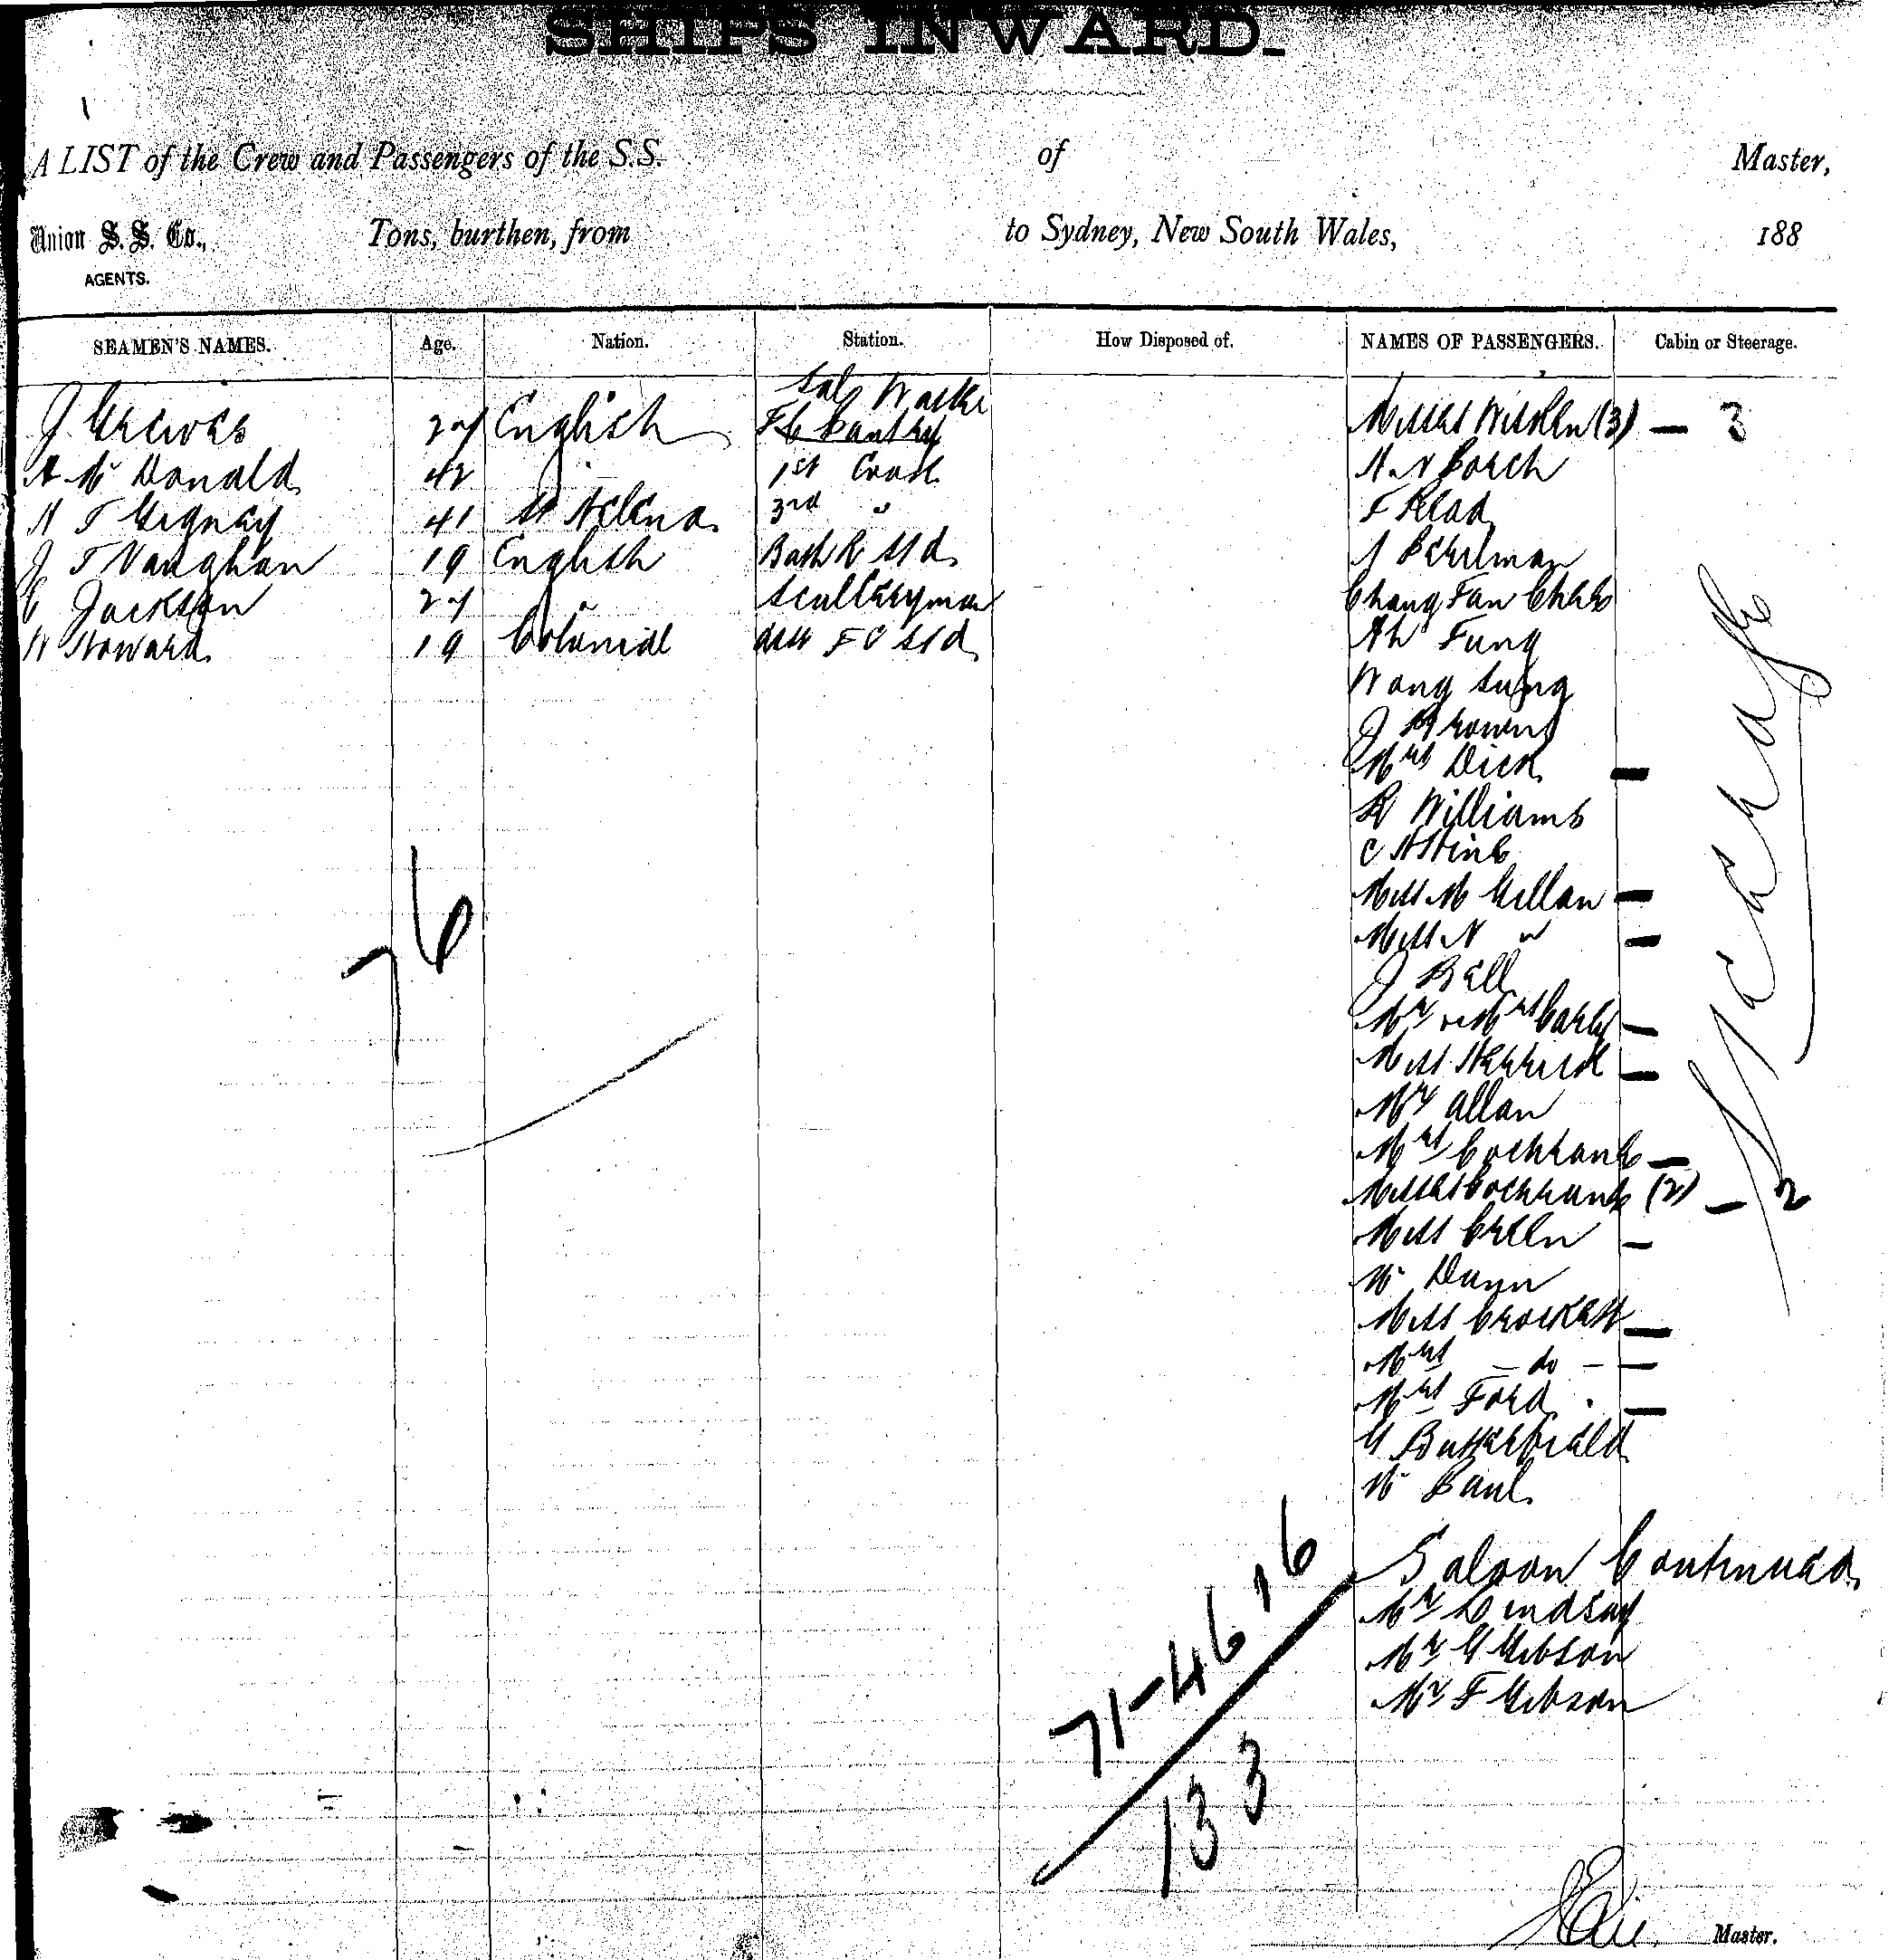 SHIPS INWARD.
A LIST of the Crew and Passengers of the S.S. of Master,
Union S. S. Co., Tons, burthen, from to Sydney, New South Wales, 188
AGENTS.
SEAMEN'S NAMES. Age. Nation. Station. How Disposed of. NAMES OF PASSENGERS. Cabin or Steerage.
J 27 English (3) — 3
A Mc Donald 42 1st Cook A N Porch
41 St Helena 3rd " F Read
J T Vaughan 19 English Bath R Std J
C Jackson 27 " Sculleryman Chang Fan
W Howard 19 Colonial F C Std Ah Fung
Wong Sung
J Brown
Mrs Dick —
R Williams
C
Miss M Gillan —
Miss N " —
J Bell
Mr & Mrs —
Miss Herrick —
Mr Allan
Mrs Cochrane —
Misses Cochrane (2) — 2
Miss Green —
W Dunn
Miss Crockett —
Mrs — do — —
Mrs Ford —
G Butterfield
W Paul
Steerage
76
Saloon Continued
Mr Lindsay
Mr G Gibson
Mr F Gibson
71-46 16
133
Master.